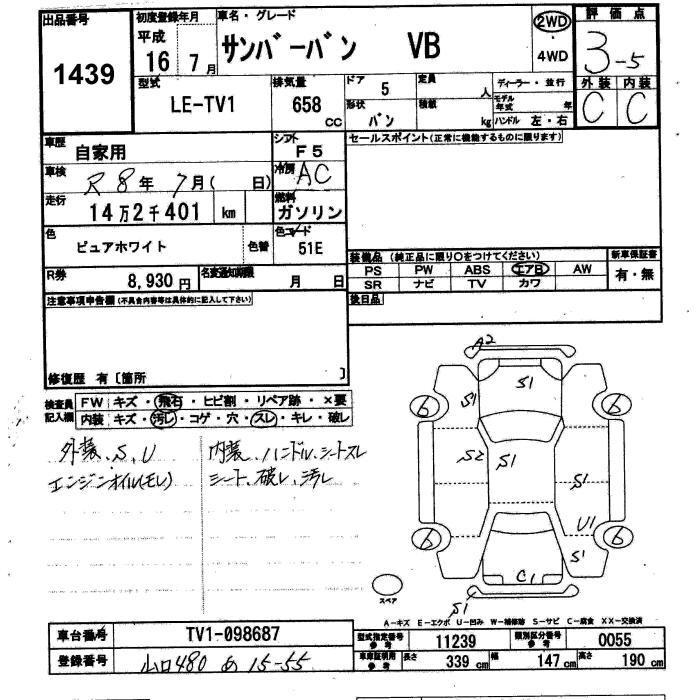 出品番号
1439
初度登録年月
平成
16年 7月
車名・グレード
サンバーバン VB
2WD
4WD
評価点
3-5
外装 内装
C C
型式
LE-TV1
排気量
658 cc
ドア
5
定員
人
ディーラー・並行
モデル年式 年
形状
バン
積載
kg
ハンドル 左・右
車歴
自家用
シフト
F5
セールスポイント(正常に機能するものに限ります)
車検
R8年 7月( 日)
冷房
AC
走行
14万2千401 km
燃料
ガソリン
色
ピュアホワイト
色替
色コード
51E
装備品(純正品に限り○をつけてください)
新車保証書
PS PW ABS エアB AW
SR ナビ TV カワ
有・無
R券
8,930円
名変通知期限
月 日
後日品
注意事項申告欄(不具合内容等は具体的に記入して下さい)
修復歴 有〔箇所 〕
検査員記入欄
FW キズ・飛石・ヒビ割・リペア跡・×要
内装 キズ・汚レ・コゲ・穴・スレ・キレ・破レ
外装、S、U
エンジンオイル(モレ)
内装、ハンドル、シートスレ
シート、破レ、汚レ
A2
S1
S1
6
6
S2
S1
S1
U1
6
6
S1
C1
S1
スペア
A-キズ E-エクボ U-凹み W-補修跡 S-サビ C-腐食 XX-交換済
車台番号
TV1-098687
型式指定番号 参考
11239
類別区分番号 参考
0055
登録番号
山口480 あ 15-55
車庫証明用 参考
長さ 339 cm
幅 147 cm
高さ 190 cm